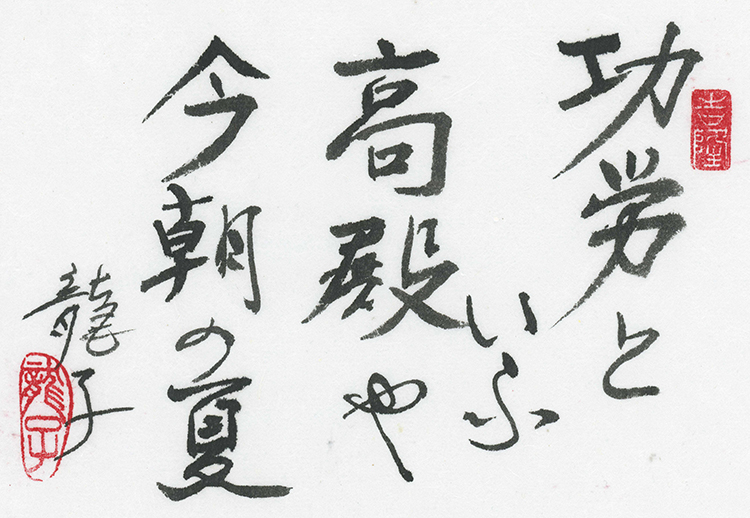 功労と
いふ
高殿や
今朝の夏
龍子
龍子